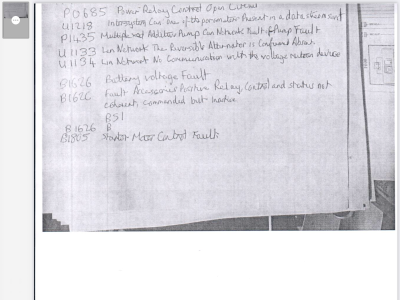 P0685 Power Relay Control Open Circuit
U1218
P1435 Multiplexed Additive Pump Can Network Fault of Pump Fault
U1133 Lin Network The Reversible Alternator is Confirmed Absent
U1134 Lin Network No Communication with the voltage device
B1626 Battery voltage Fault
B162C Fault Accessories Active Relay, Control and status not
coherent, commanded but inactive
RSI
B1626 B
Starter Motor Control Fault